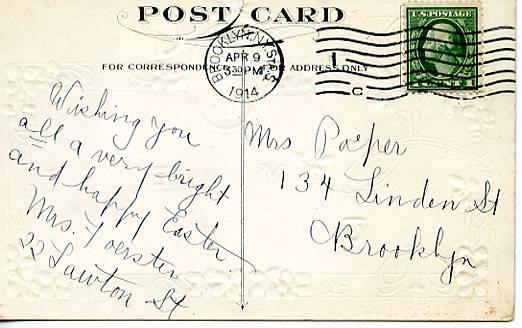 POST CARD
FOR CORRESPONDENCE
FOR ADDRESS ONLY
BROOKLYN, N.Y.
APR 9
330 PM
1914
1
C
U.S. POSTAGE
Wishing You
all a very bright
and happy Easter.
Mrs.
22 Lawton St.
Mrs
134 Linden St
Brooklyn